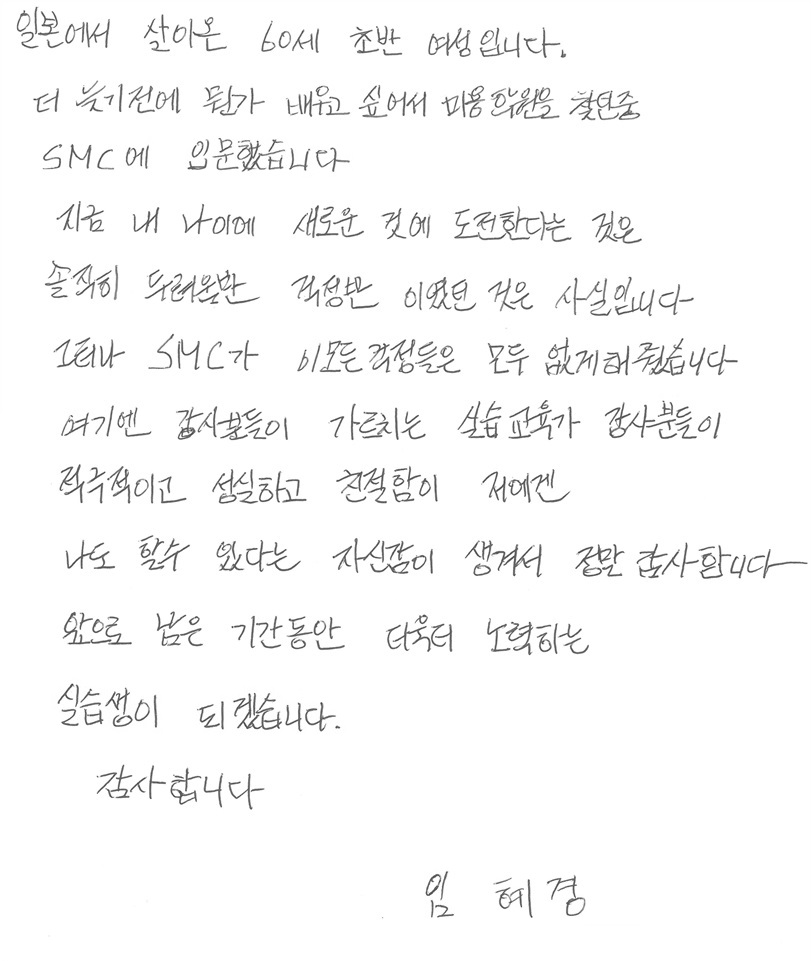 일본에서 살아온 60세 초반 여성입니다.
더 늦기전에 뭔가 배우고 싶어서 미용학원을 찾던중
SMC에 입문했습니다
지금 내 나이에 새로운 것에 도전한다는 것은
솔직히 두려움반 걱정반 이였던 것은 사실입니다
그러나 SMC가 이모든걱정들은 모두 없게해줬습니다
여기엔 강사분들이 가르치는 실습교육가 강사분들이
적극적이고 성실하고 친절함이 저에겐
나도 할수 있다는 자신감이 생겨서 정말 감사합니다
앞으로 남은 기간동안 더욱더 노력하는
실습생이 되겠습니다.
감사합니다
임 혜경